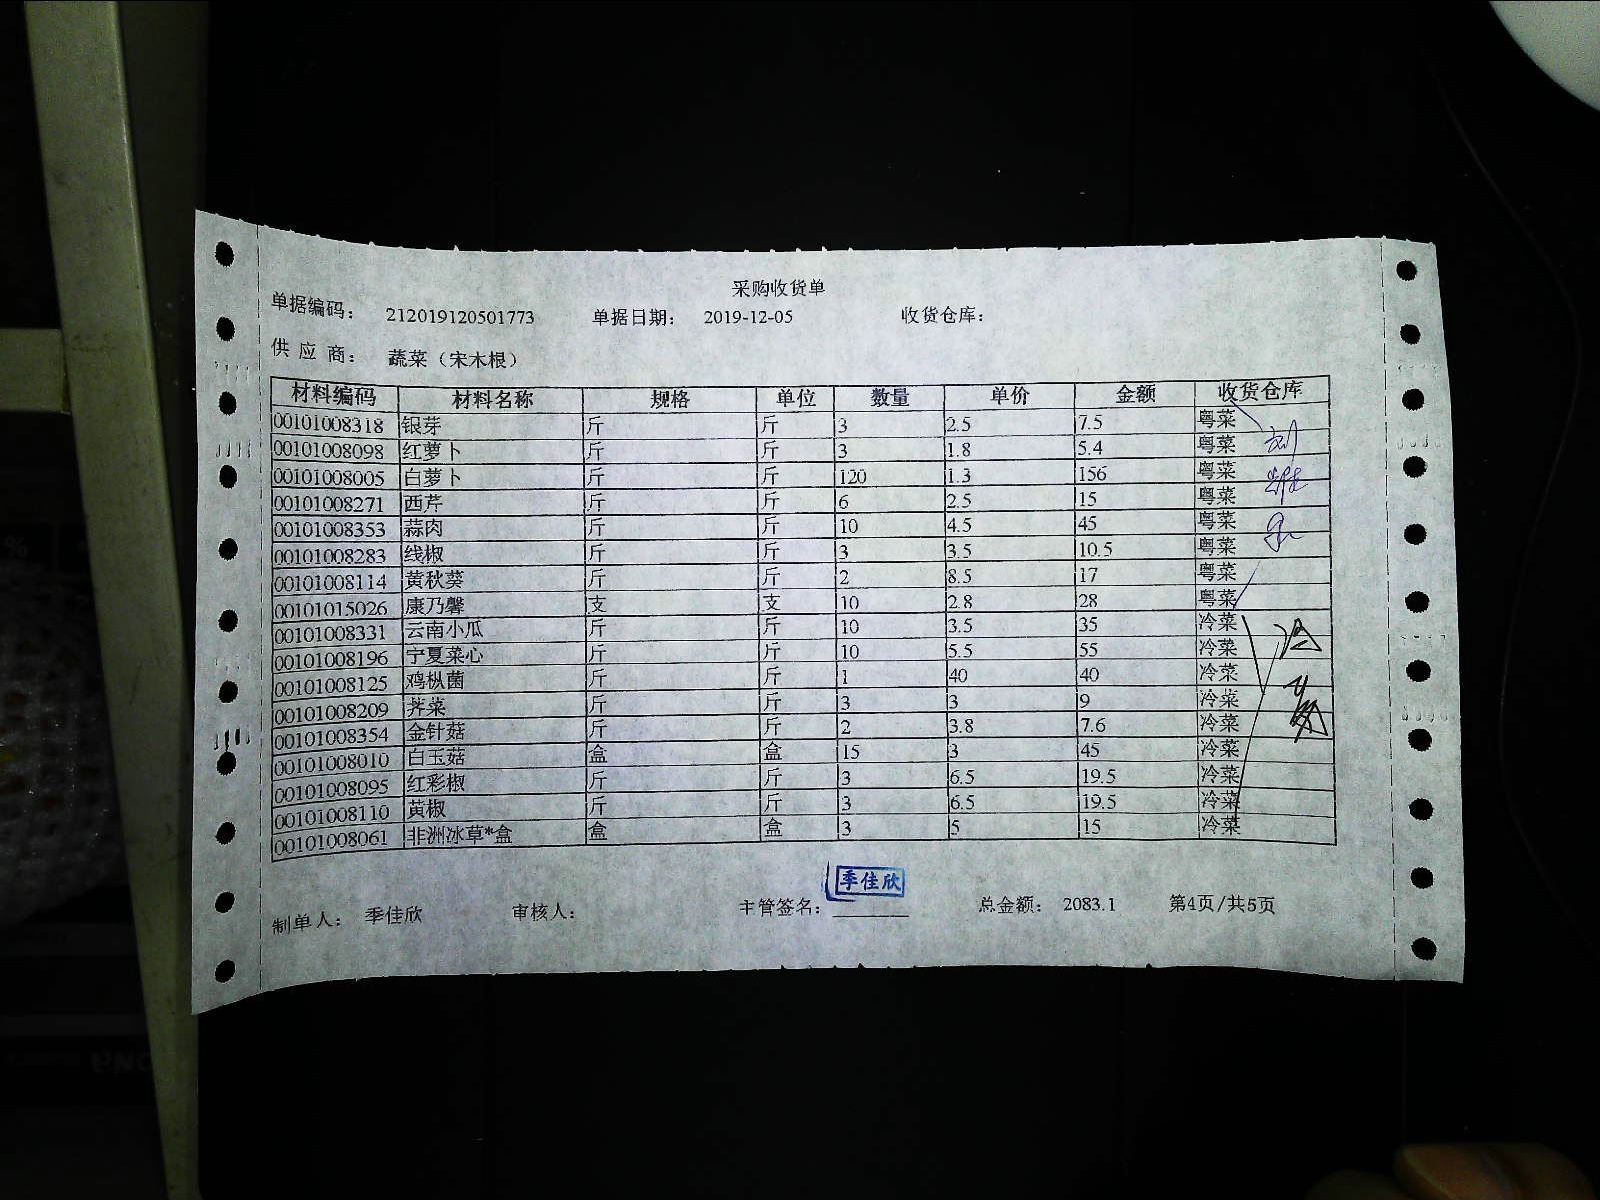 采购收货单
单据编码： 212019120501773 单据日期： 2019-12-05 收货仓库：
供 应 商： 蔬菜（宋木根）
材料编码 材料名称 规格 单位 数量 单价 金额 收货仓库
00101008318 银芽 斤 斤 3 2.5 7.5 粤菜
00101008098 红萝卜 斤 斤 3 1.8 5.4 粤菜
00101008005 白萝卜 斤 斤 120 1.3 156 粤菜
00101008271 西芹 斤 斤 6 2.5 15 粤菜
00101008353 蒜肉 斤 斤 10 4.5 45 粤菜
00101008283 线椒 斤 斤 3 3.5 10.5 粤菜
00101008114 黄秋葵 斤 斤 2 8.5 17 粤菜
00101015026 康乃馨 支 支 10 2.8 28 粤菜
00101008331 云南小瓜 斤 斤 10 3.5 35 冷菜
00101008196 宁夏菜心 斤 斤 10 5.5 55 冷菜
00101008125 鸡枞菌 斤 斤 1 40 40 冷菜
00101008209 荠菜 斤 斤 3 3 9 冷菜
00101008354 金针菇 斤 斤 2 3.8 7.6 冷菜
00101008010 白玉菇 盒 盒 15 3 45 冷菜
00101008095 红彩椒 斤 斤 3 6.5 19.5 冷菜
00101008110 黄椒 斤 斤 3 6.5 19.5 冷菜
00101008061 非洲冰草*盒 盒 盒 3 5 15 冷菜
季佳欣
制单人： 季佳欣 审核人： 主管签名： 总金额： 2083.1 第4页/共5页